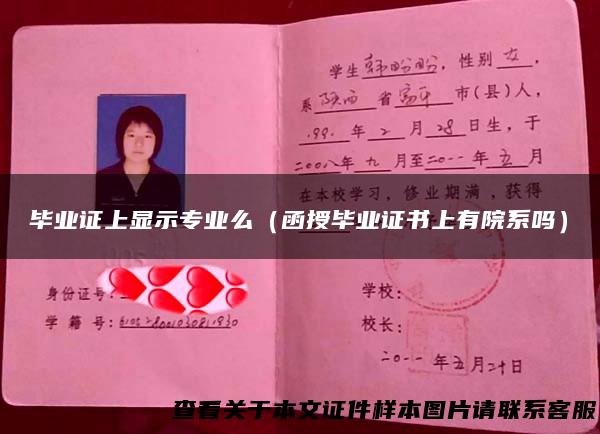 学生韩盼盼,性别女,
系陕西省富平市(县)人,
199 年2月28日生,于
二00八年九月至二0一一年五月
在本校学习,修业期满,获得
毕业证上显示专业么(函授毕业证书上有院系吗)
身份证号:
学籍号:
学校:
校长:
二0一一年五月二十日
查看关于本文证件样本图片请联系客服